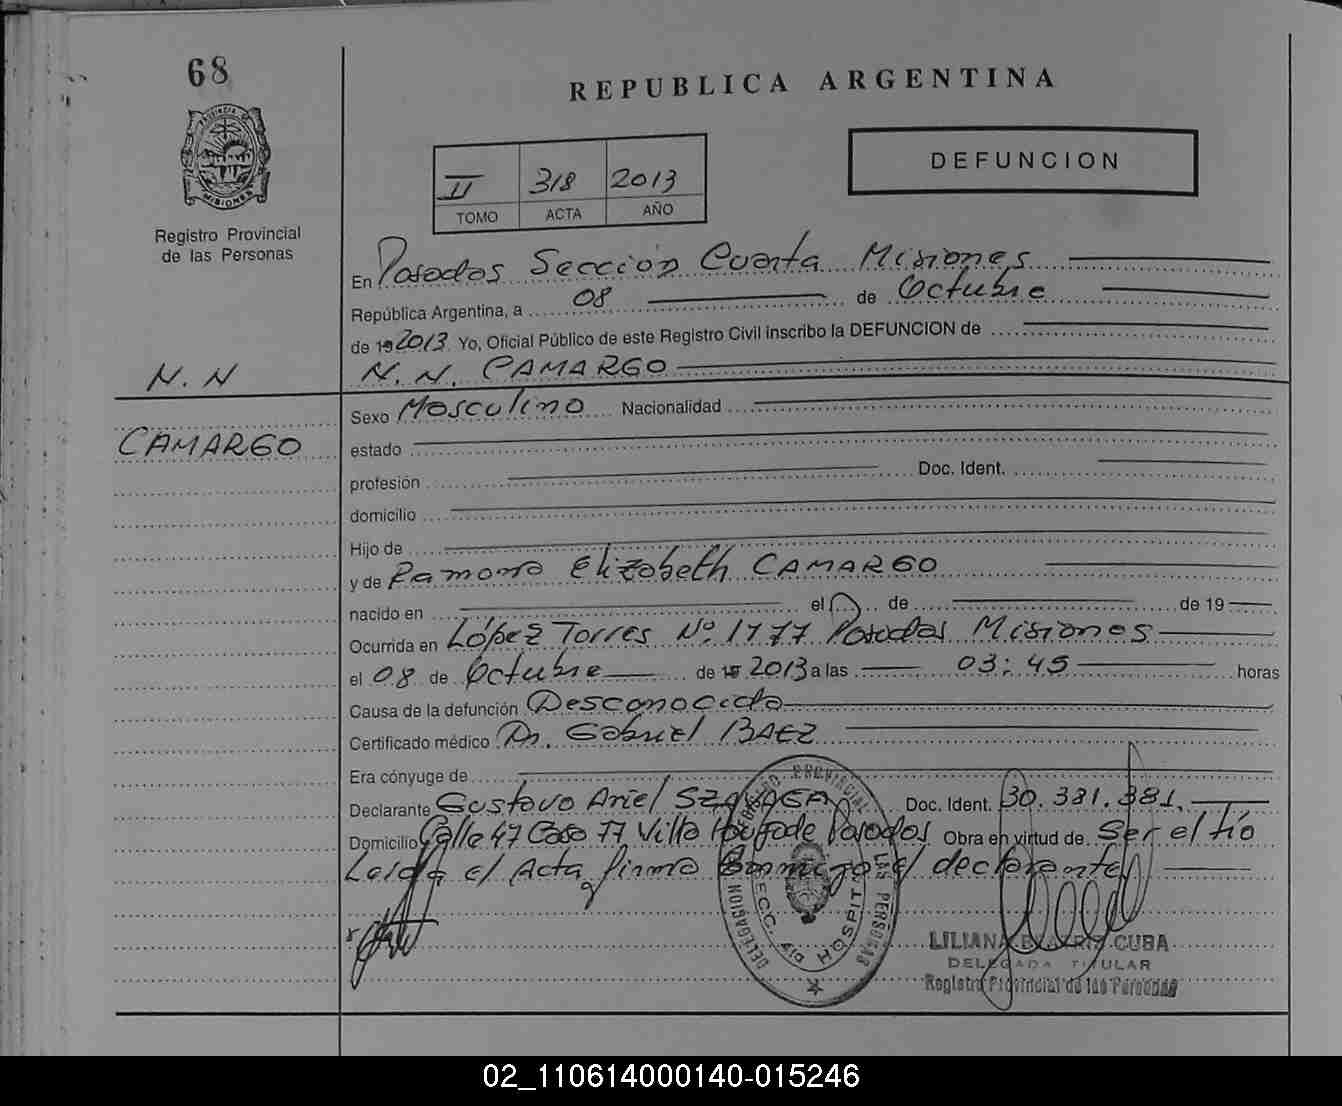 68
REPUBLICA ARGENTINA
PROVINCIA DE
MISIONES
Registro Provincial
de las Personas
II 318 2013
TOMO ACTA AÑO
DEFUNCION
En Posadas Sección Cuarta Misiones
República Argentina, a 08 de Octubre
de 19 2013 Yo, Oficial Público de este Registro Civil inscribo la DEFUNCION de
N. N N. N. CAMARGO
Sexo Masculino Nacionalidad
CAMARGO
estado
profesión Doc. Ident.
domicilio
Hijo de
y de Ramona Elizabeth CAMARGO
nacido en el de de 19
Ocurrida en López Torres Nº 1777 Posadas Misiones
el 08 de Octubre de 19 2013 a las 03:45 horas
Causa de la defunción Desconocida
Certificado médico Dr. Gabriel BAEZ
Era cónyuge de
Declarante Gustavo Ariel Doc. Ident. 30.381.381.
Domicilio Calle 47 Casa 77 Villa Posadas Obra en virtud de Ser el tío
Leída el Acta firma conmigo el declarante
REGISTRO PROVINCIAL
LAS PERSONAS
DELEGACION
SECC. 4ta HOSPITAL
LILIANA BEATRIZ CUBA
DELEGADA TITULAR
Registro Provincial de las Personas
02_110614000140-015246